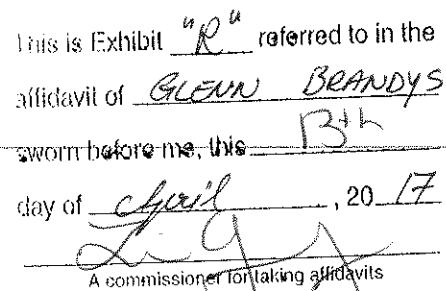 This is Exhibit "R" referred to in the
affidavit of GLENN BRANDYS
sworn before me, this 13th
day of April, 2017
A commissioner for taking affidavits